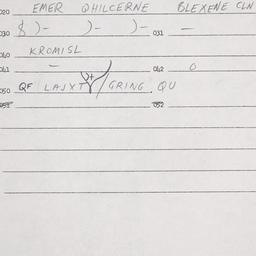 020 EMER QHILCERNE BLEXENE CLN
030 & )- )- )- 031 -
040 KROMISL
041 - 042 0
050 QF LAJXT / GRING. QU
052